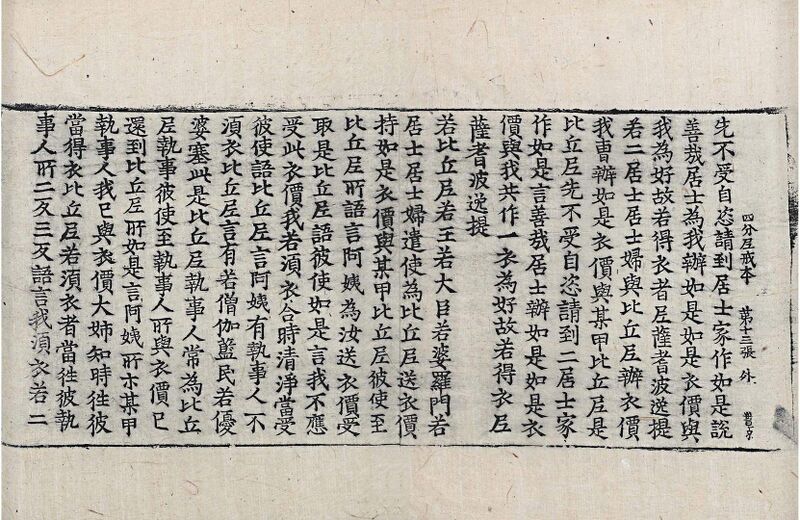 四分尼戒本　第十三張　外
先不受自恣請到居士家作如是說
善哉居士為我辦如是如是衣價與
我為好故若得衣者尼薩耆波逸提
若二居士居士婦與比丘尼辦衣價
我曹辦如是衣價與某甲比丘尼是
比丘尼先不受自恣請到二居士家
作如是言善哉居士辦如是如是衣
價與我共作一衣為好故若得衣尼
薩耆波逸提
若比丘尼若王若大臣若婆羅門若
居士居士婦遣使為比丘尼送衣價
持如是衣價與某甲比丘尼彼使至
比丘尼所語言阿姨為汝送衣價受
取是比丘尼語彼使如是言我不應
受此衣價我若須衣合時清淨當受
彼使語比丘尼言阿姨有執事人不
須衣比丘尼言有若僧伽藍民若優
婆塞此是比丘尼執事人常為比丘
尼執事彼使至執事人所與衣價已
還到比丘尼所如是言阿姨所示某甲
執事人我已與衣價大姉知時往彼
當得衣比丘尼若須衣者當往彼執
事人所二反三反語言我須衣若二